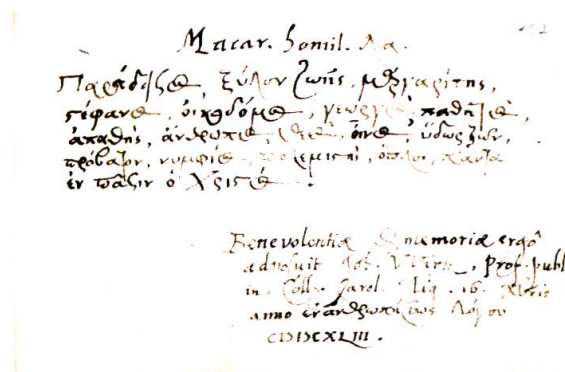 Macar. homil. λα.
Παράδεισε, ξύλον ζωῆς, μαργαρίτης,
στέφανε, οἰκοδόμε, γεωργὲ, παθητὲ,
ἀπαθὴς, ἄνθρωπε, Θεὲ, οἶνε, ὕδωρ ζῶν,
πρόβατον, νυμφίε, πολεμιστὴς, ὅπλον, πάντα
ἐν πᾶσιν ὁ Χριστὸς.
Benevolentiæ & memoriæ ergô
adposuit Joh. Prof. publ
in Coll. Carol. Lig. 16. Xbris
anno ἐνανθρωπήσεως Λόγου
CIƆIƆCXLIII.